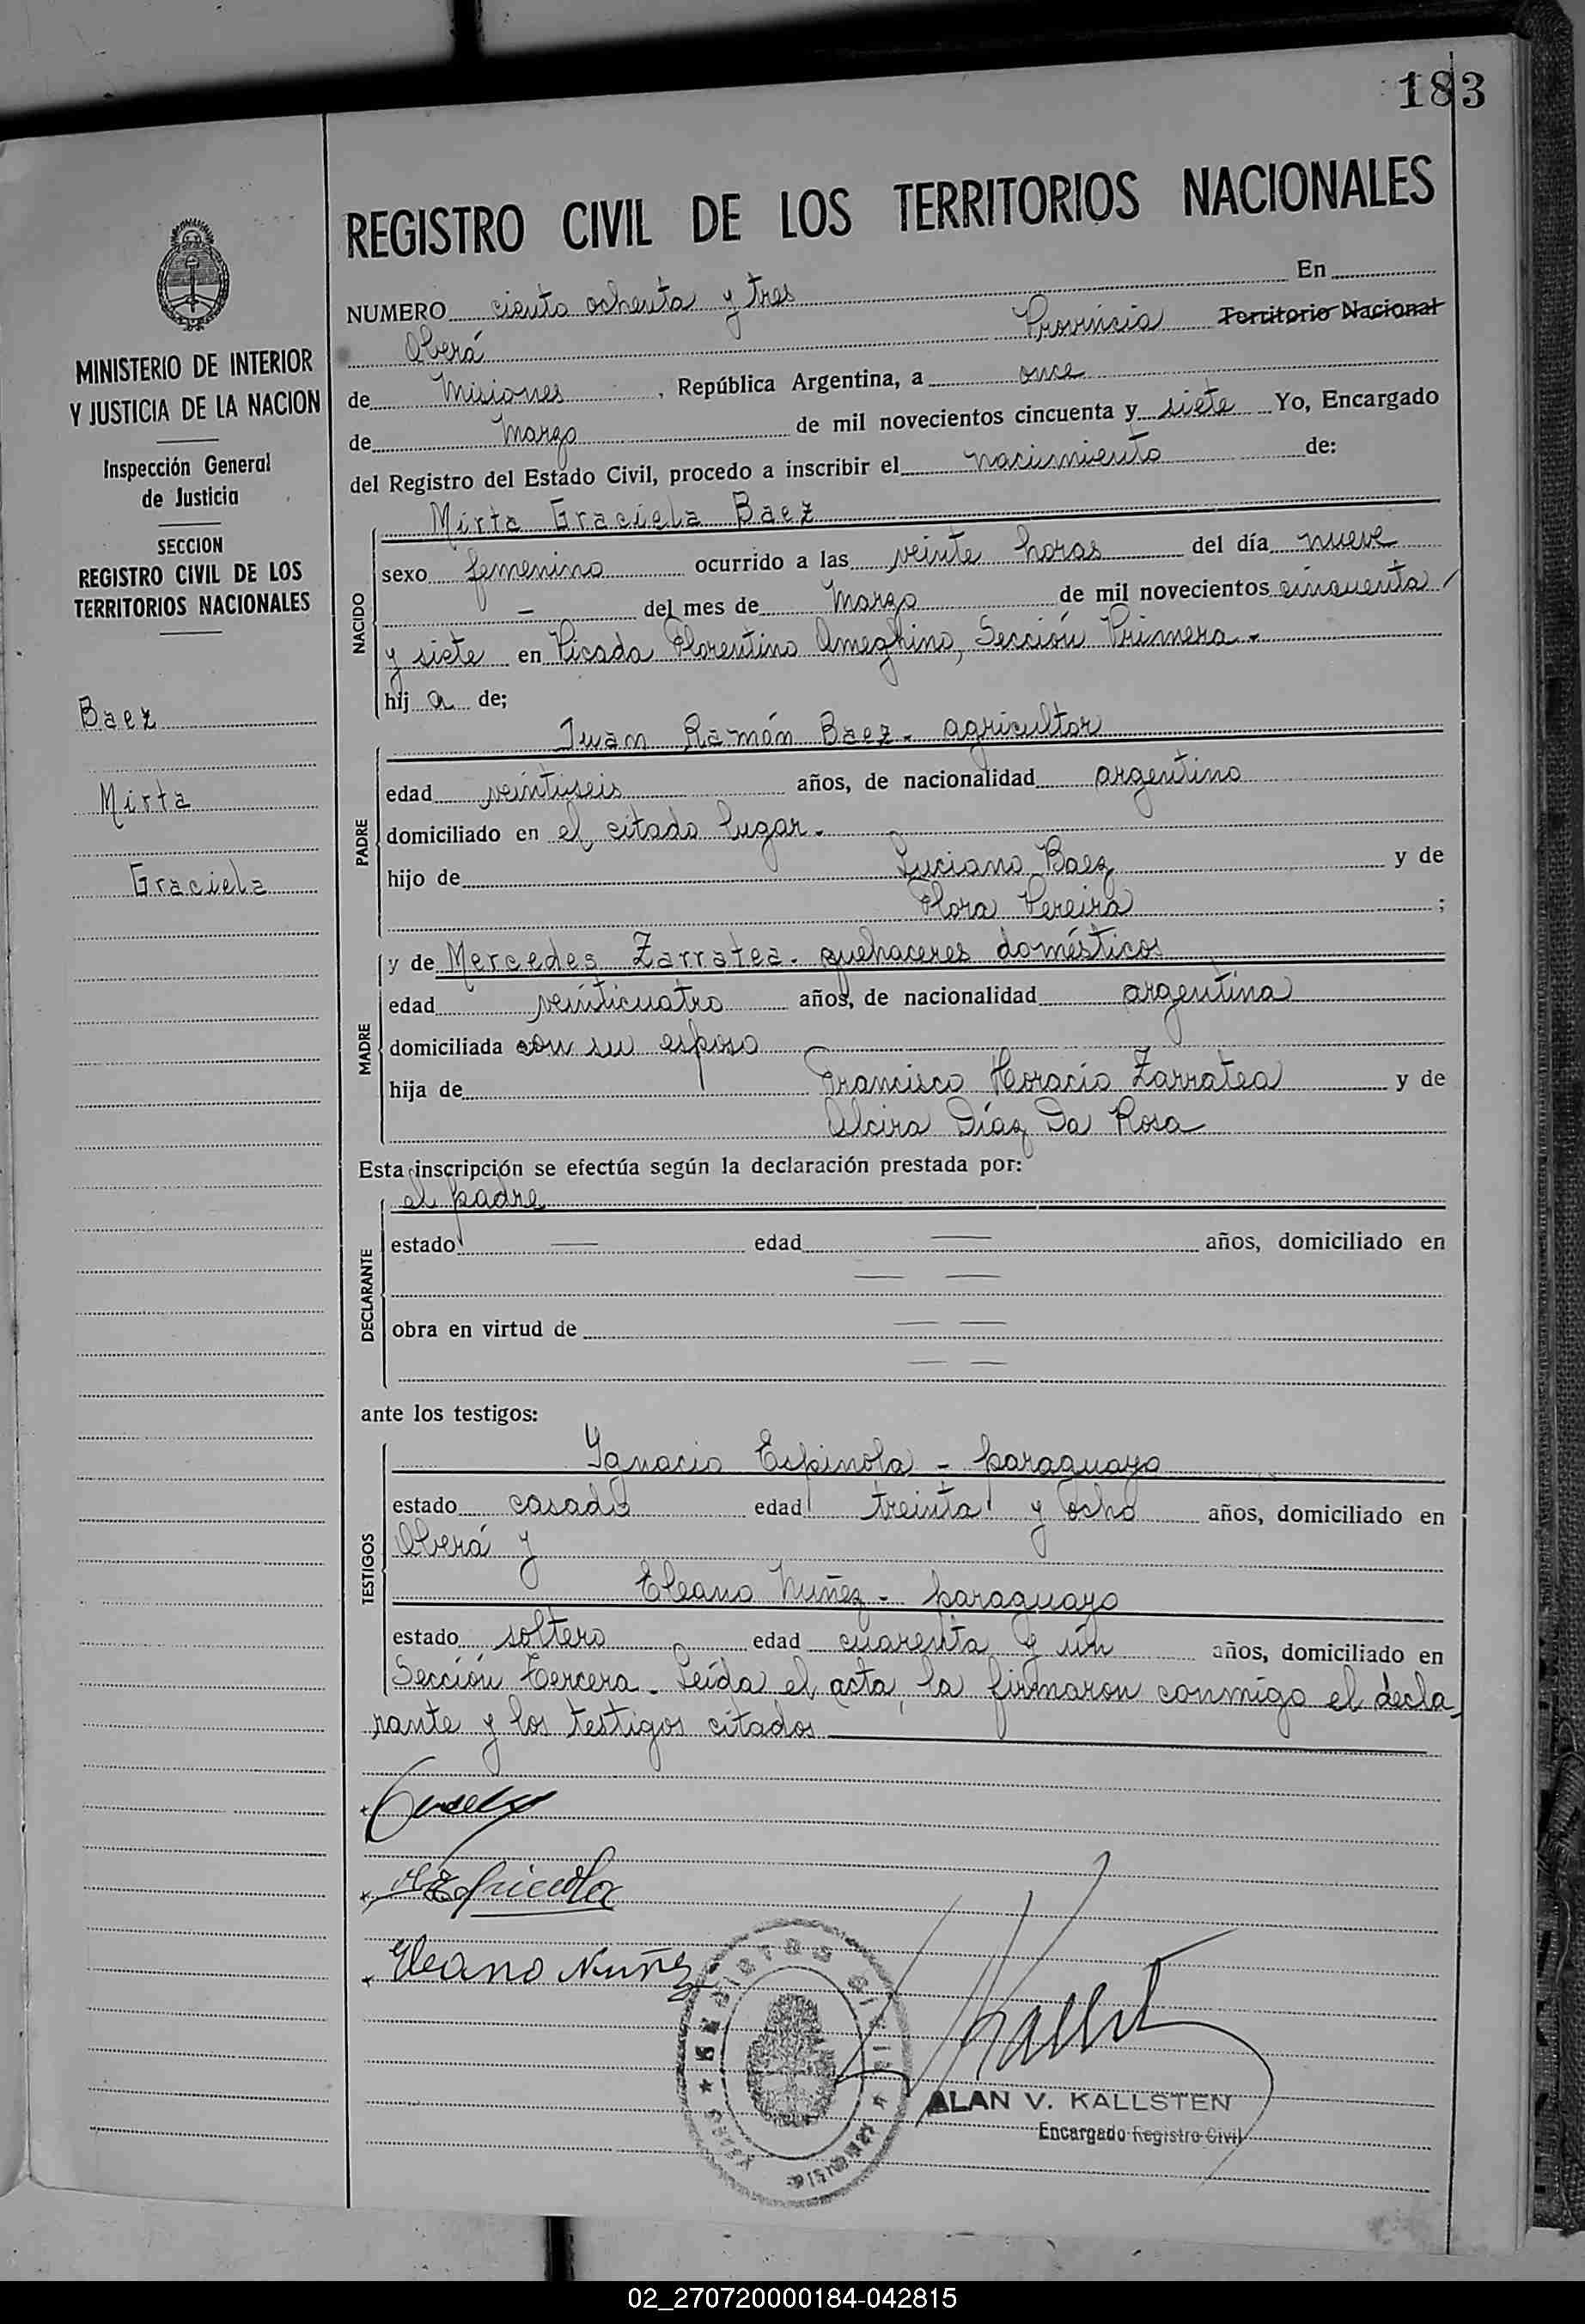 183
REGISTRO CIVIL DE LOS TERRITORIOS NACIONALES
NUMERO ciento ochenta y tres En
Oberá Provincia Territorio Nacional
de Misiones, República Argentina, a once
de Marzo de mil novecientos cincuenta y siete Yo, Encargado
del Registro del Estado Civil, procedo a inscribir el nacimiento de:
MINISTERIO DE INTERIOR
Y JUSTICIA DE LA NACION
Inspección General
de Justicia
SECCION
REGISTRO CIVIL DE LOS
TERRITORIOS NACIONALES
Baez
Mirta
Graciela
NACIDO
Mirta Graciela Baez
sexo femenino ocurrido a las veinte horas del día nueve
— del mes de Marzo de mil novecientos cincuenta
y siete en Picada Florentino Ameghino, Sección Primera.-
hij a de;
PADRE
Juan Ramón Baez - agricultor
edad veintiseis años, de nacionalidad argentino
domiciliado en el citado lugar.
hijo de Luciano Baez y de
Flora Pereira ;
MADRE
y de Mercedes Zarratea - quehaceres domésticos
edad veinticuatro años, de nacionalidad argentina
domiciliada con su esposo
hija de Francisco Horacio Zarratea y de
Alcira Díaz Da Rosa
Esta inscripción se efectúa según la declaración prestada por:
DECLARANTE
el padre
estado — edad — años, domiciliado en
— —
obra en virtud de — —
— —
ante los testigos:
TESTIGOS
Ygnacio Espinola - paraguayo
estado casado edad treinta y ocho años, domiciliado en
Oberá y
Eleano Nuñez - paraguayo
estado soltero edad cuarenta y un años, domiciliado en
Sección Tercera - Leída el acta, la firmaron conmigo el decla-
rante y los testigos citados
Eleano Nuñez
REGISTRO CIVIL
ALAN V. KALLSTEN
Encargado Registro Civil
02_270720000184-042815